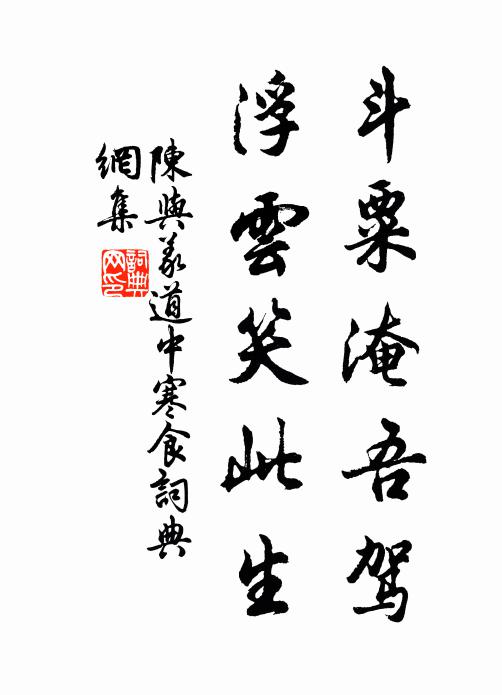 斗粟淹吾駕
浮雲笑此生
陳與義道中寒食詞典
網集
詞典
网印